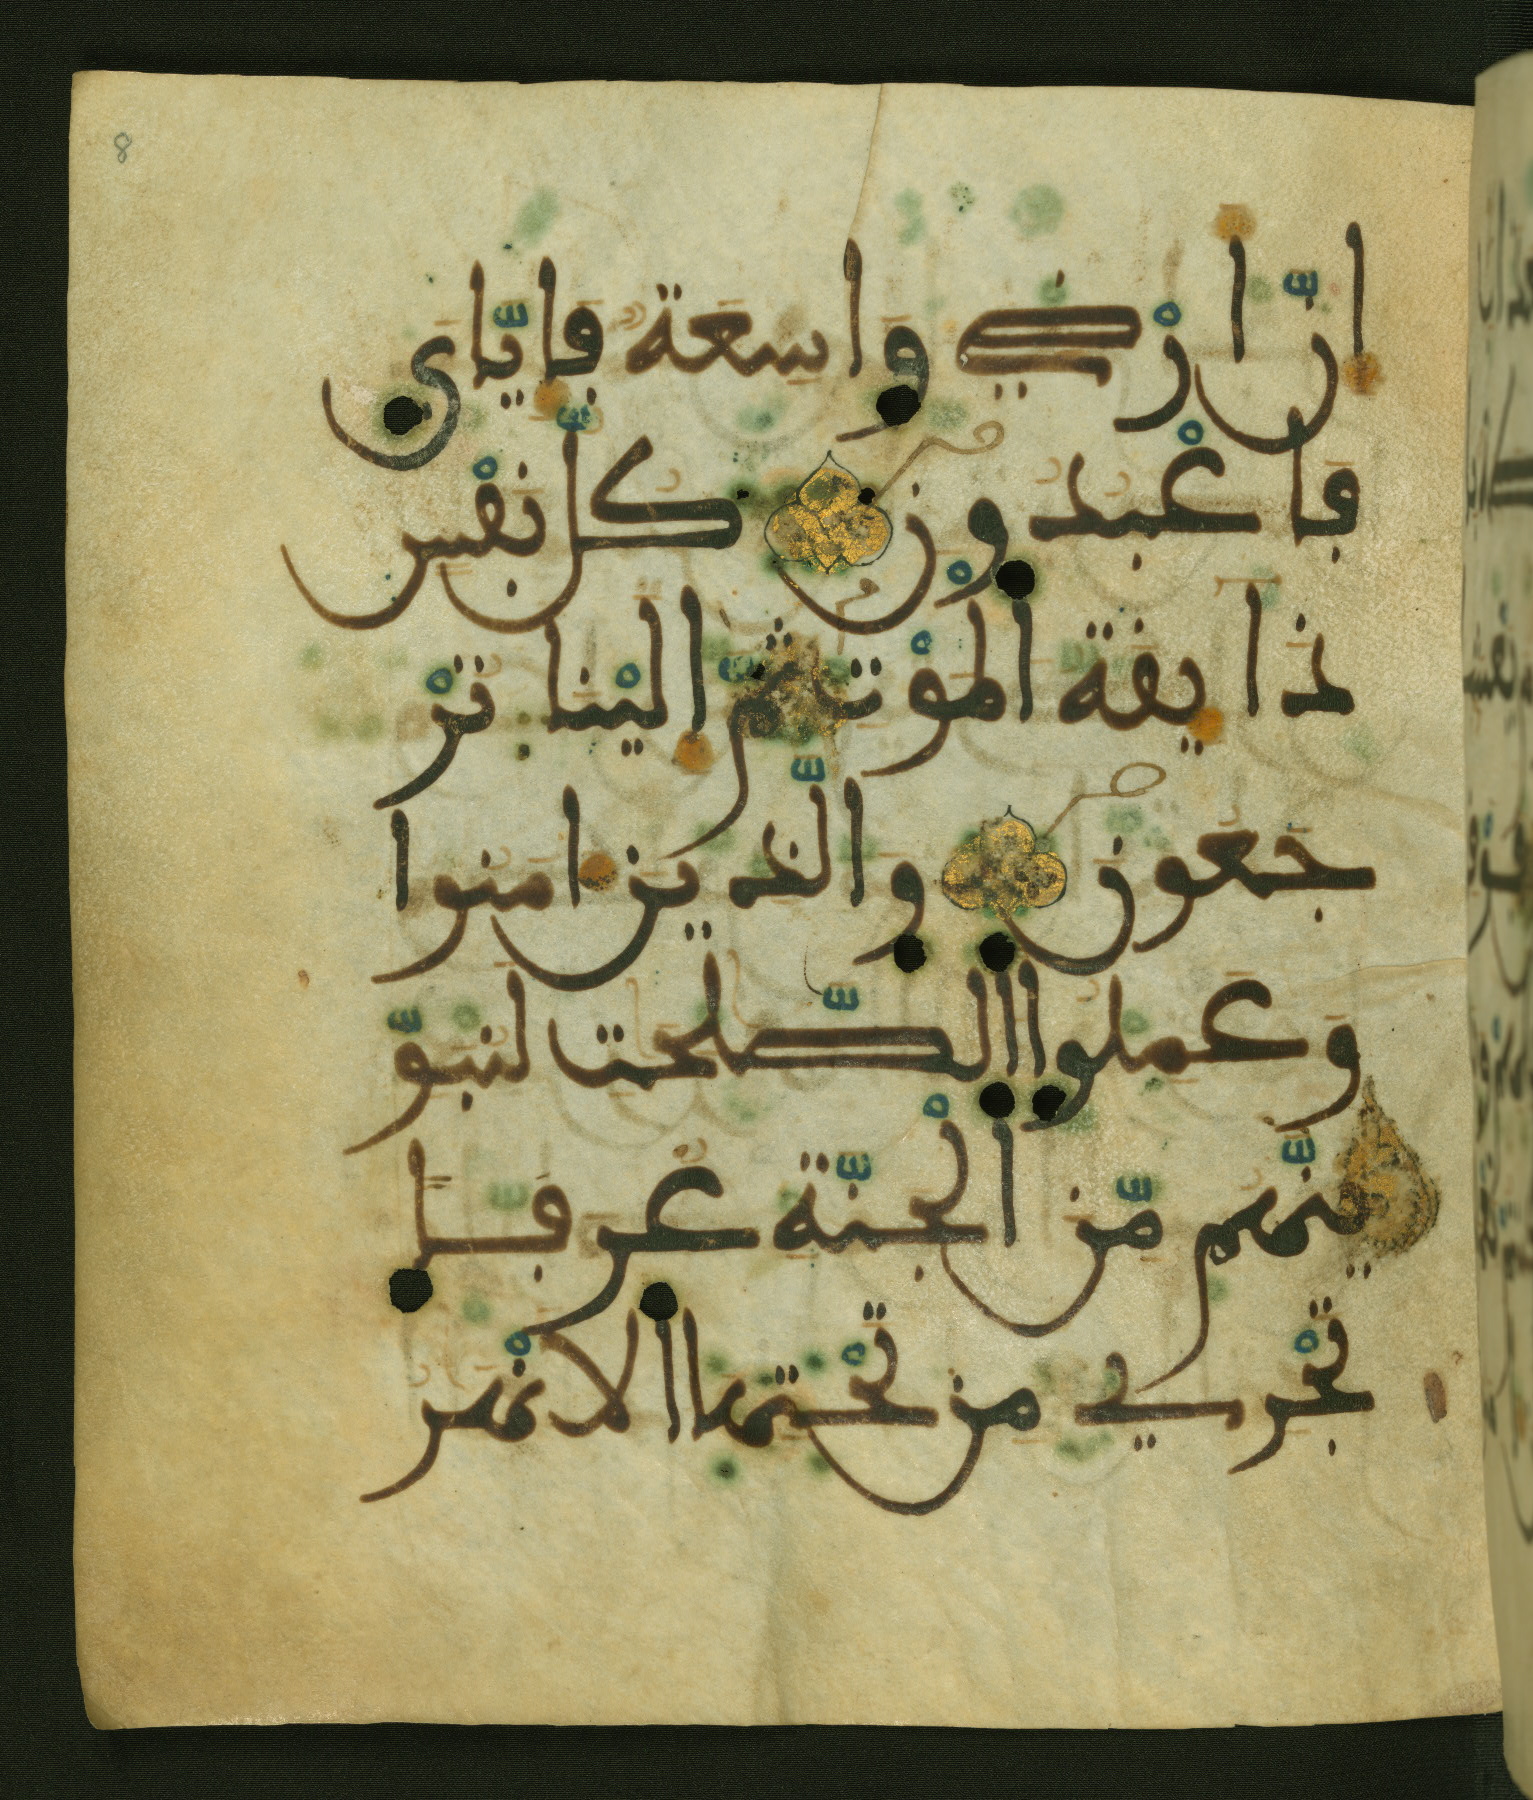 8
ان ارضي واسعة فاياى
فاعبدون كل نفس
ذايقة الموت ثم الينا تر
جعون والذين امنوا
وعملوا الصلحت لنبو
ينهم من الجنة غرفا
تجري من تحتها الانهر